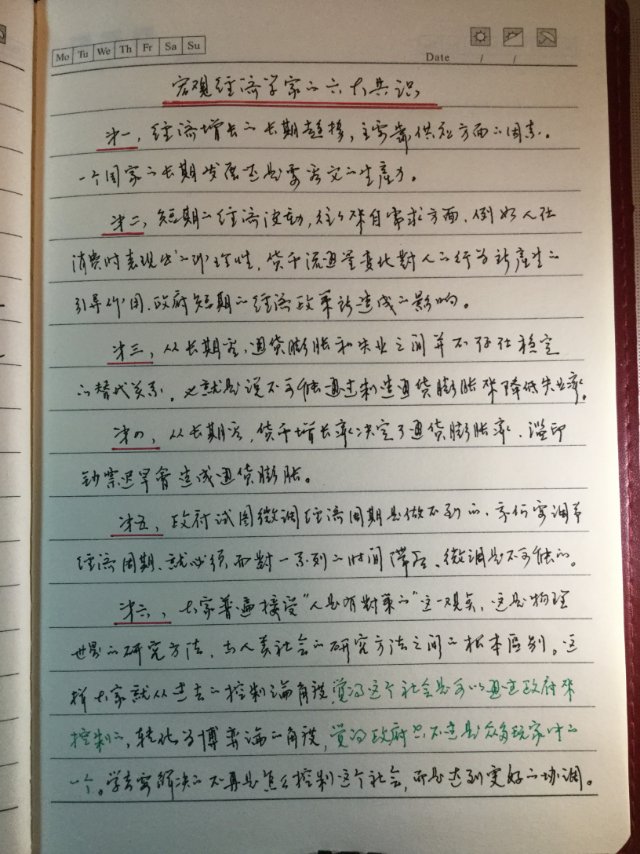 Mo Tu We Th Fr Sa Su
Date / /
宏观经济学家的六大共识
第一，经济增长的长期趋势，主要靠供应方面的因素。
一个国家的长期发展还是要靠它的生产力。
第二，短期的经济波动，往往来自需求方面，例如人在
消费时表现出的非理性，货币流通量变化对人的行为所产生的
引导作用、政府短期的经济政策所造成的影响。
第三，从长期看，通货膨胀和失业之间并不存在稳定
的替代关系，也就是说不可能通过制造通货膨胀来降低失业率。
第四，从长期看，货币增长率决定了通货膨胀率、滥印
钞票迟早会造成通货膨胀。
第五，政府试图微调经济周期是做不到的，音何要调节
经济周期、就必须面对一系列的时间滞后、微调是不可能的。
第六，大家普遍接受"人是有对策的"这一观点，这是物理
世界的研究方法，与人类社会的研究方法之间的根本区别。这
样大家就从过去的控制论角度，觉得这个社会是可以通过政府来
控制的，转化为博弈论的角度，觉得政府只不过是众多玩家中的
一个。学者要解决的不再是怎么控制这个社会，而是达到更好的协调。